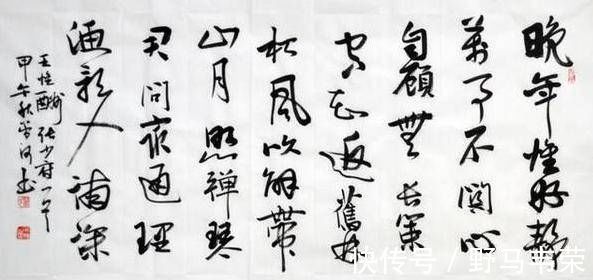 晚年惟好静
萬事不關心
自顧無長策
空知返舊林
松風吹解帶
山月照彈琴
君問窮通理
漁歌入浦深
王維酬张少府一首
甲午秋
快传号 / 野马